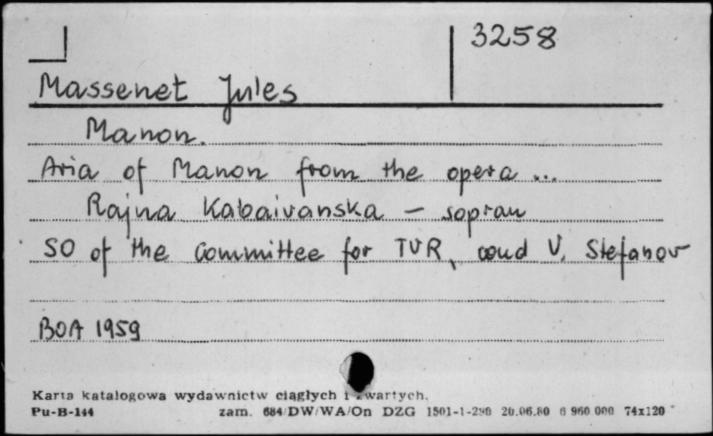 3258
Massenet Jules
Manon.
Aria of Manon from the opera ...
Rajna Kabaivanska – sopran
SO of the Committee for TVR, cond V. Stefanov
BOA 1959
Karta katalogowa wydawnictw ciągłych i zwartych.
Pu-B-144 zam. 684/DW/WA/On DZG 1501-1-280 20.06.80 6 960 000 74x120